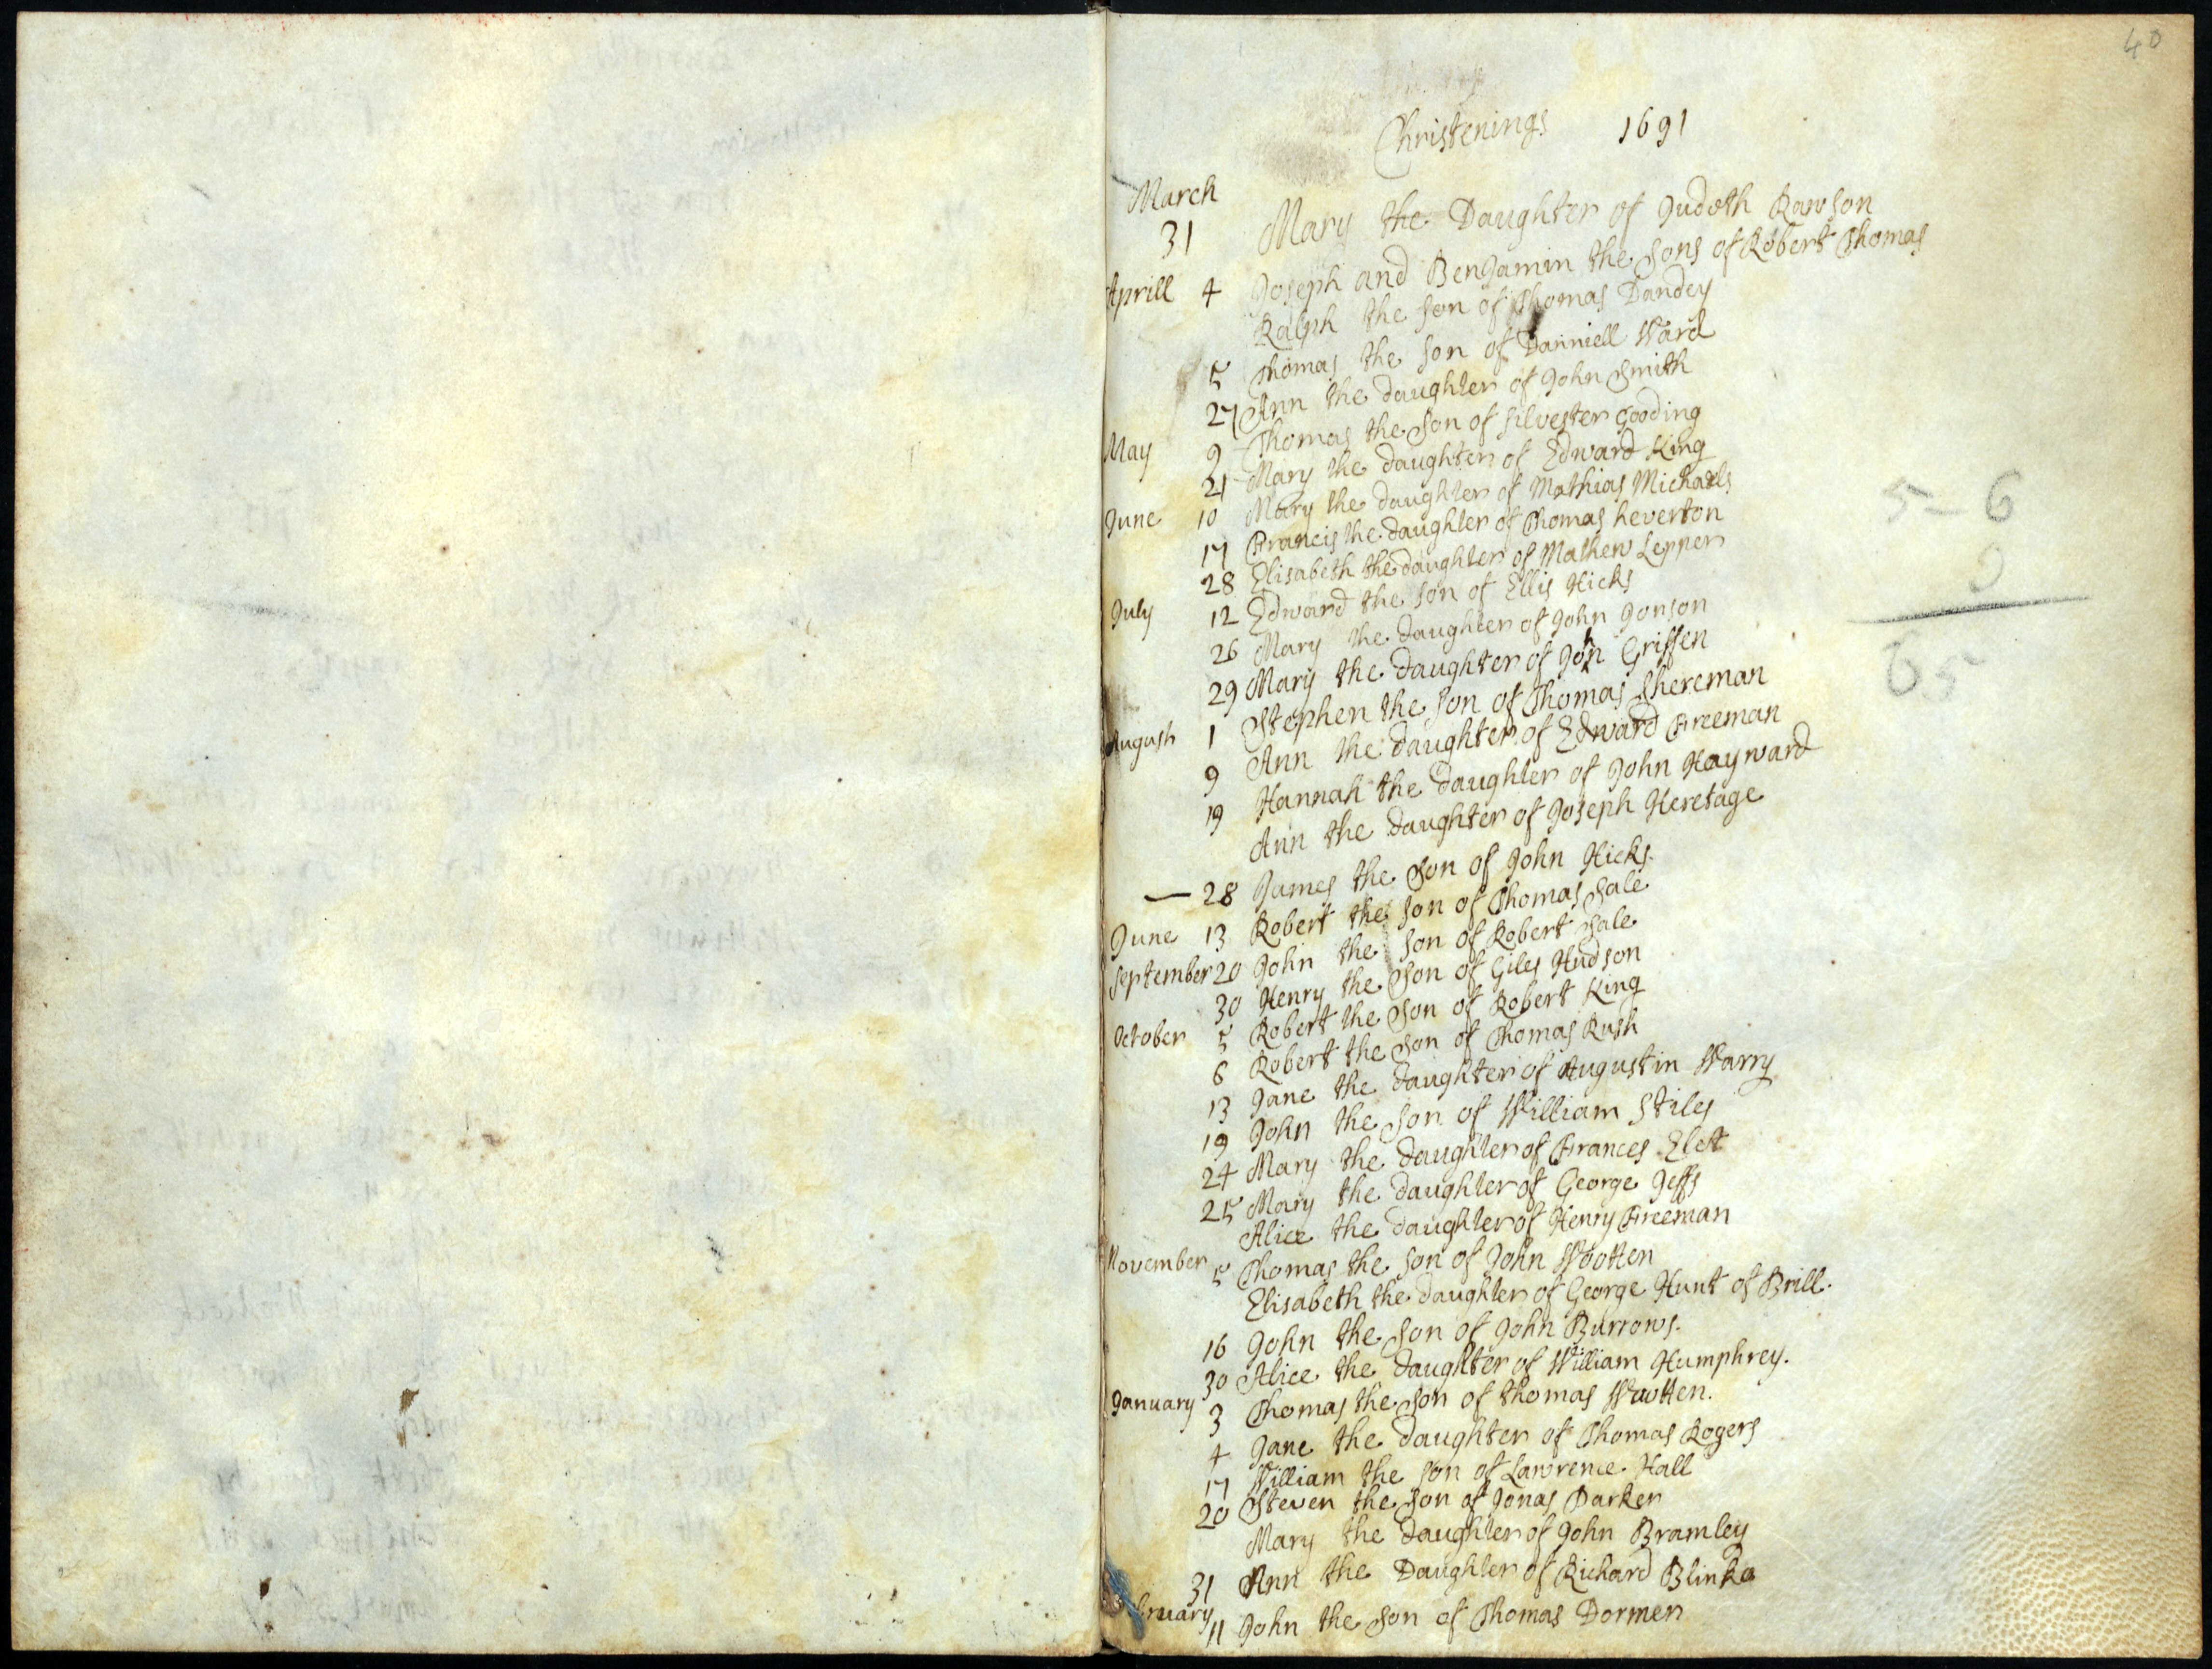 40
Christenings 1691
March
31 Mary the Daughter of Judeth Rawson
Aprill 4 Joseph and Benjamin the Sons of Robert Thomas
Ralph the son of Thomas Dandey
5 Thomas the son of Danniell Ward
27 Ann the daughter of John Smith
May 9 Thomas the Son of Silvester Gooding
21 Mary the daughter of Edward King
June 10 Mary the daughter of Mathias Michaels
17 Francis the daughter of Thomas Leverton
28 Elisabeth the daughter of Mathew Lepper
July 12 Edward the son of Ellis Hicks
26 Mary the daughter of John Jonson
29 Mary the daughter of John Griffen
August 1 Stephen the son of Thomas Shereman
9 Ann the daughter of Edward Freeman
19 Hannah the daughter of John Hayward
Ann the daughter of Joseph Heretage
— 28 James the Son of John Hicks.
June 13 Robert the son of Thomas Sale
September 20 John the son of Robert Sale
30 Henry the Son of Giles Hudson
October 5 Robert the Son of Robert King
6 Robert the Son of Thomas Rush
13 Jane the daughter of Augustin Warry
19 John the Son of William Stiles
24 Mary the daughter of Frances Elet
25 Mary the daughter of George Jeffs
Alice the daughter of Henry Freeman
November 5 Thomas the Son of John Wootten
Elisabeth the daughter of George Hunt of Brill.
16 John the Son of John Burrows.
30 Alice the daughter of William Humphrey.
January 3 Thomas the Son of thomas Wootten.
4 Jane the daughter of Thomas Rogers
17 William the Son of Lawrence Hall
20 Steven the Son of Jonas Parker
Mary the daughter of John Bramley
31 Ann the Daughter of Richard Blinko
bruary 11 John the Son of Thomas Dormer
5-6
9
65